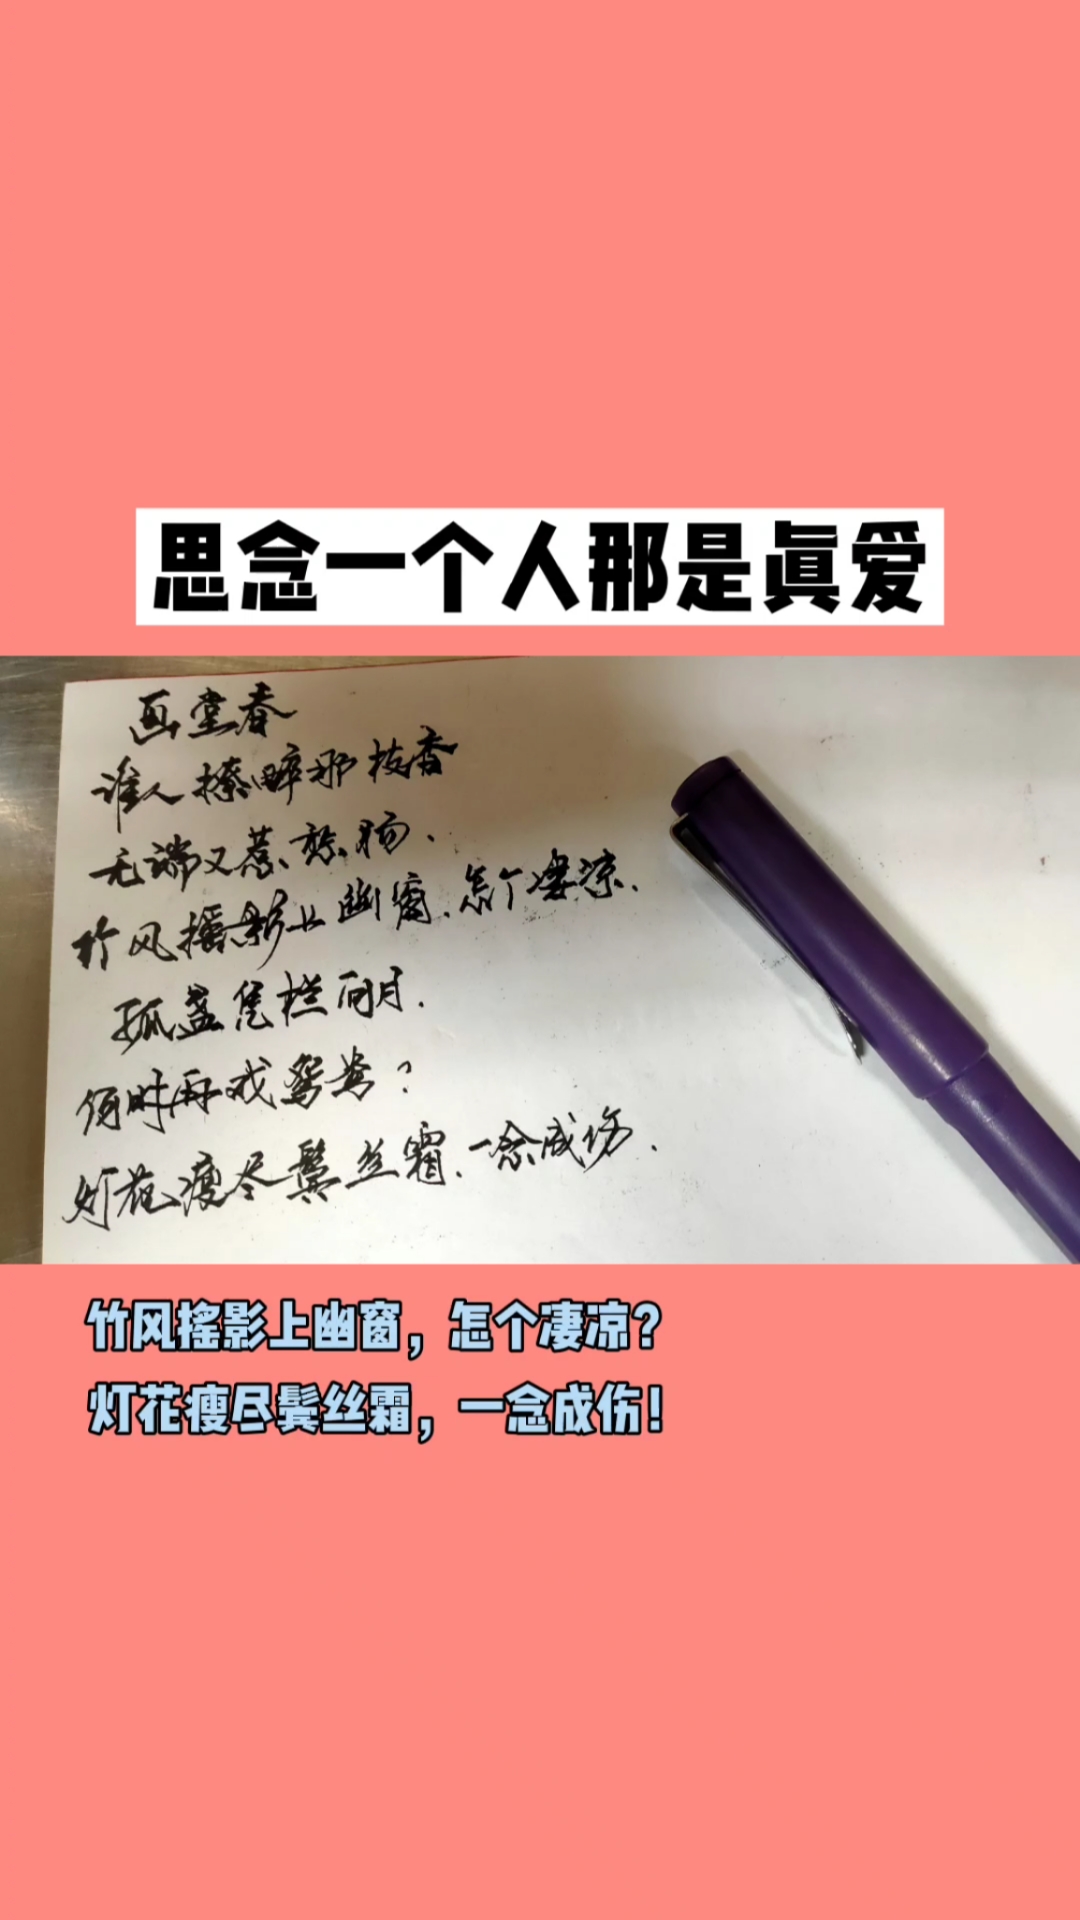 思念一个人那是真爱
画堂春
谁人撩醉那枝香
无端又惹愁肠.
竹风摇影上幽窗.怎个凄凉.
孤盏凭栏问月.
何时再戏鸳鸯?
灯花瘦尽鬓丝霜.一念成伤.
竹风摇影上幽窗，怎个凄凉?
灯花瘦尽鬓丝霜，一念成伤!